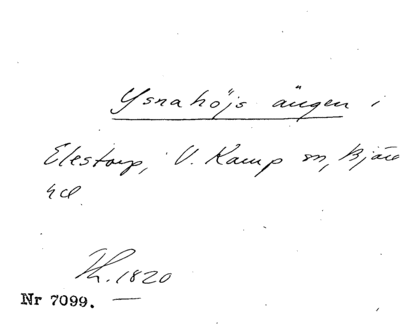 Ysnahöjs ängen i
Elestorp, V. Karup sn, Bjäre
hd
Th. 1820
Nr 7099.